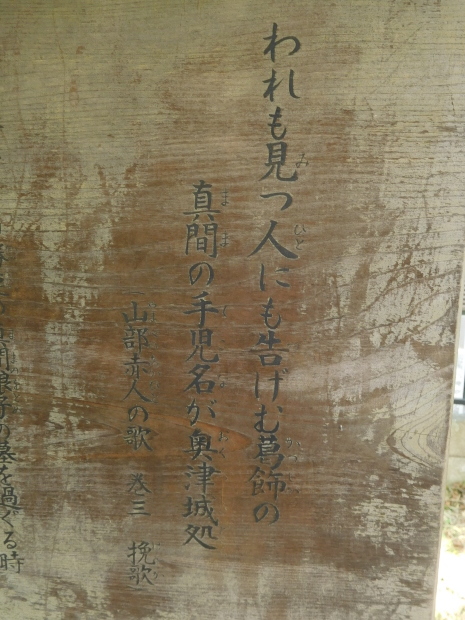 われも見つ人にも告げむ葛飾の
真間の手児名が奥津城処
(山部赤人の歌 巻三 挽歌)
の墓を過ぐる時